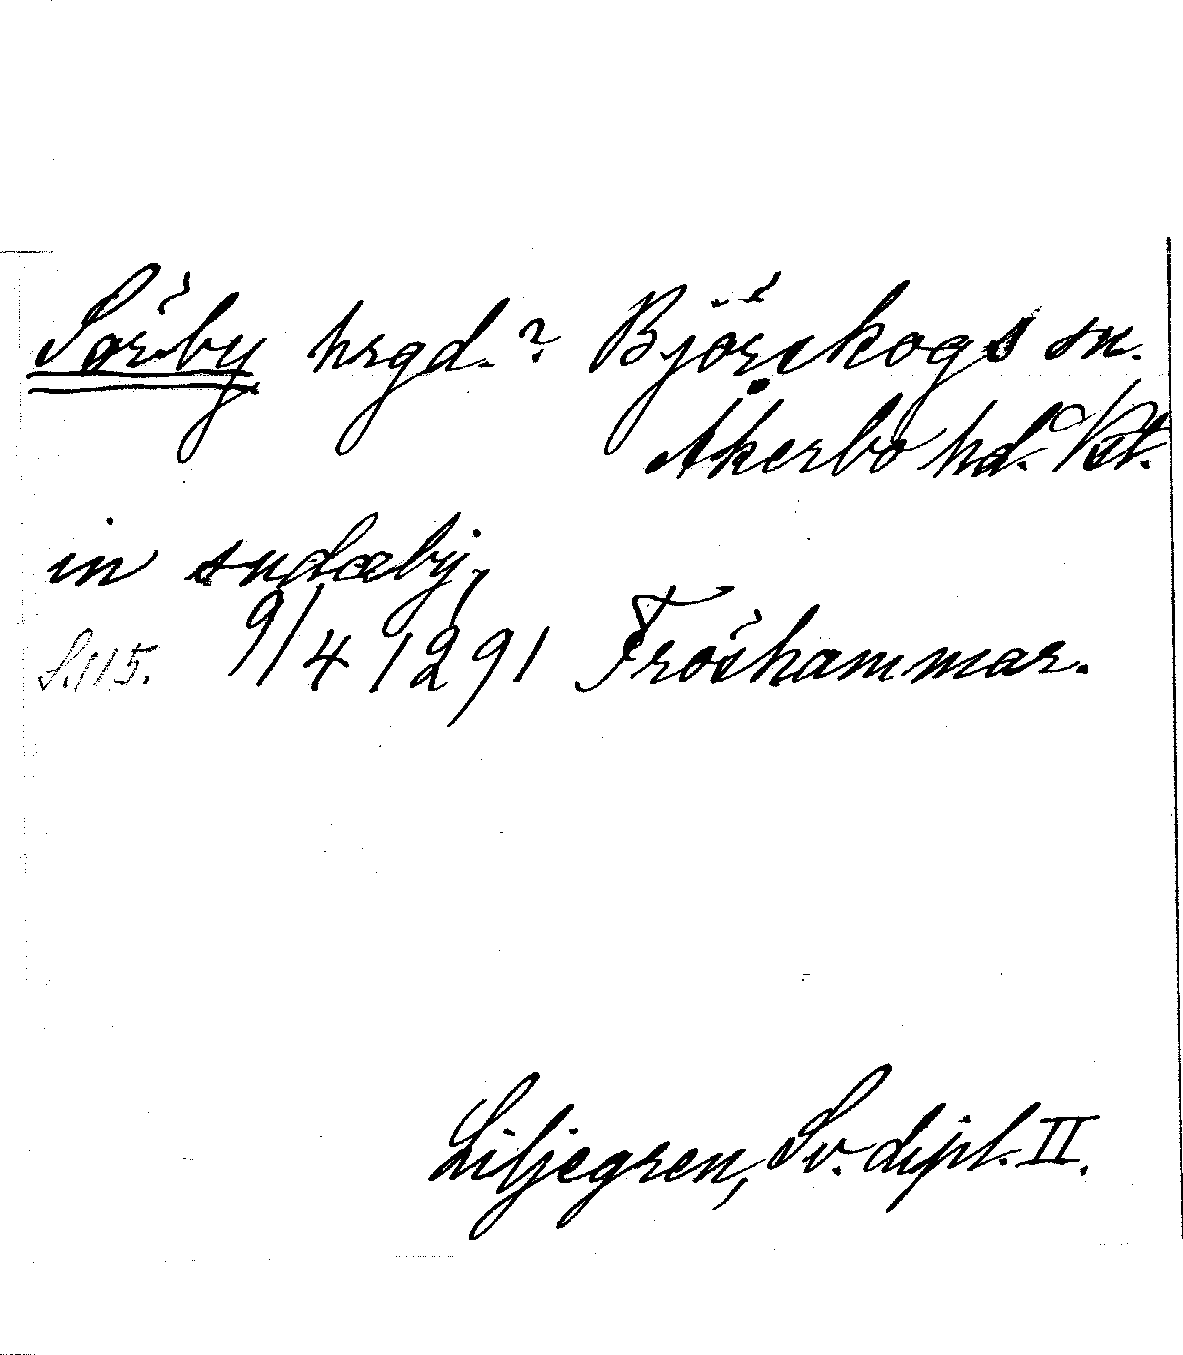 Sörby hrgd.? Björskogs sn.
Åkerbo hd. Vstm.
in sudæby,
S.115. 9/4 1291 Fröshammar.
Liljegren, Sv. dipl. II.